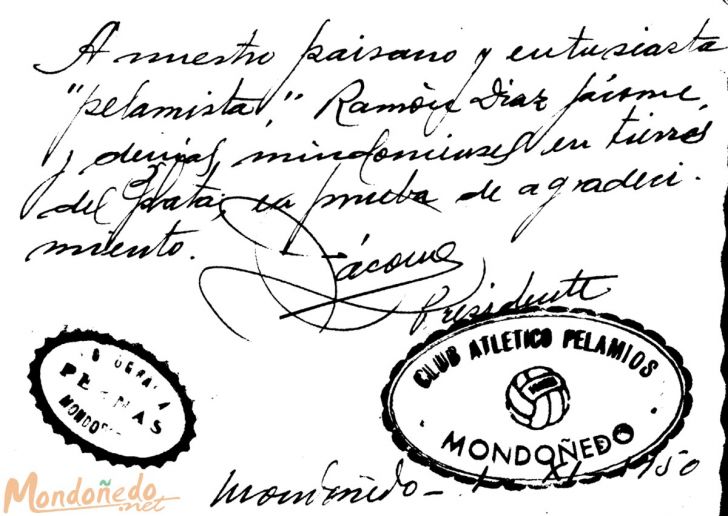 A nuestro paisano y entusiasta
"pelamista," Ramón Diaz Jácome,
y demás mindonienses en tierras
del Plata, en prueba de agradeci-
miento.
Jácome
Presidente
CLUB ATLETICO PELAMIOS
MONDOÑEDO
Mondoñedo - 1 XI 1950
Mondoñedo.net